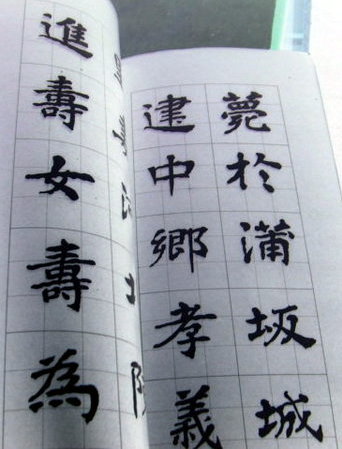 薨於蒲坂城
建中鄉孝義
進壽女壽為